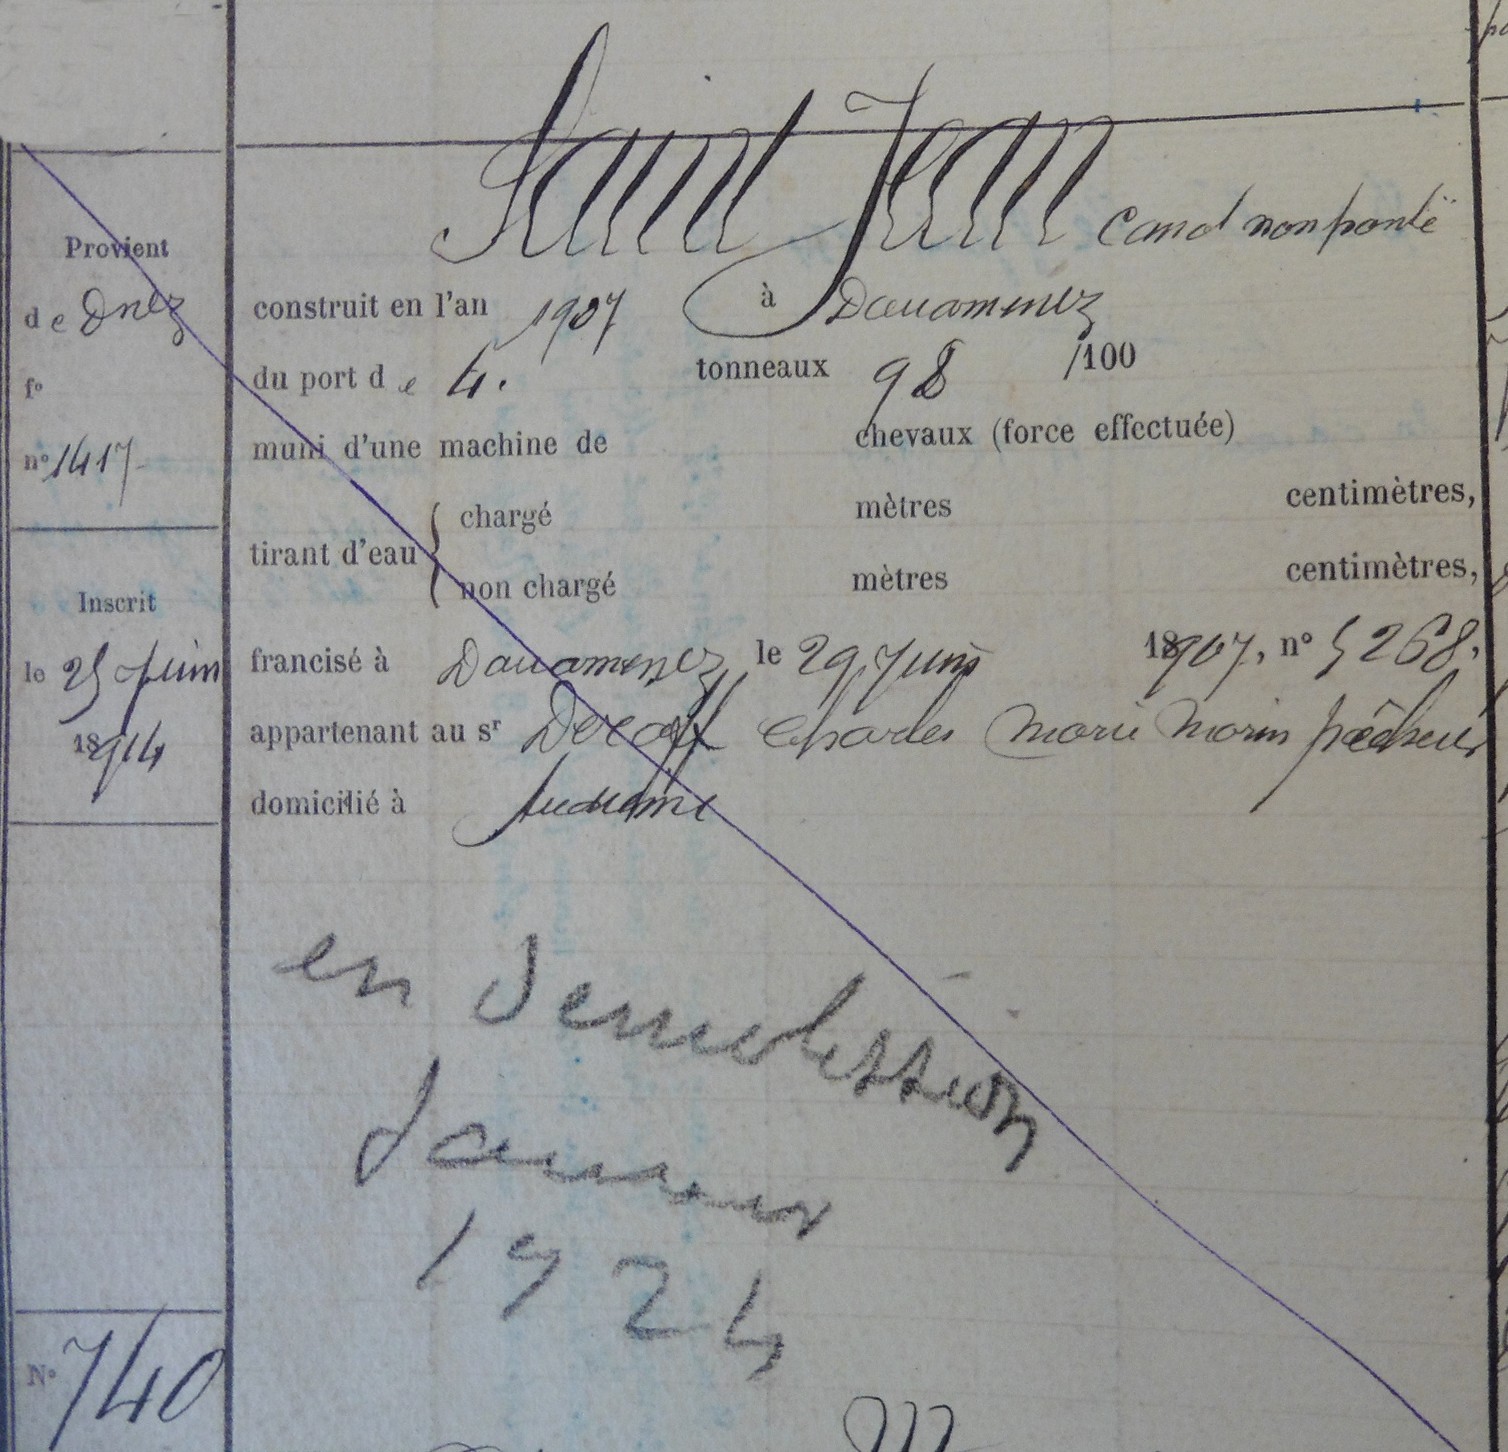 Saint Jean Canot non ponté
Provient
de Dnez
fº
nº 1417
Inscrit
le 25 Juin
1914
Nº 740
construit en l'an 1907 à Douarnenez
du port de 4. tonneaux 98 /100
muni d'une machine de chevaux (force effectuée)
tirant d'eau { chargé mètres centimètres,
non chargé mètres centimètres,
francisé à Douarnenez le 29 Juin 1907, nº 5268.
appartenant au sr Charles Marie Morin pêcheur
domicilié à Audierne
en demolission
Janvier
1924